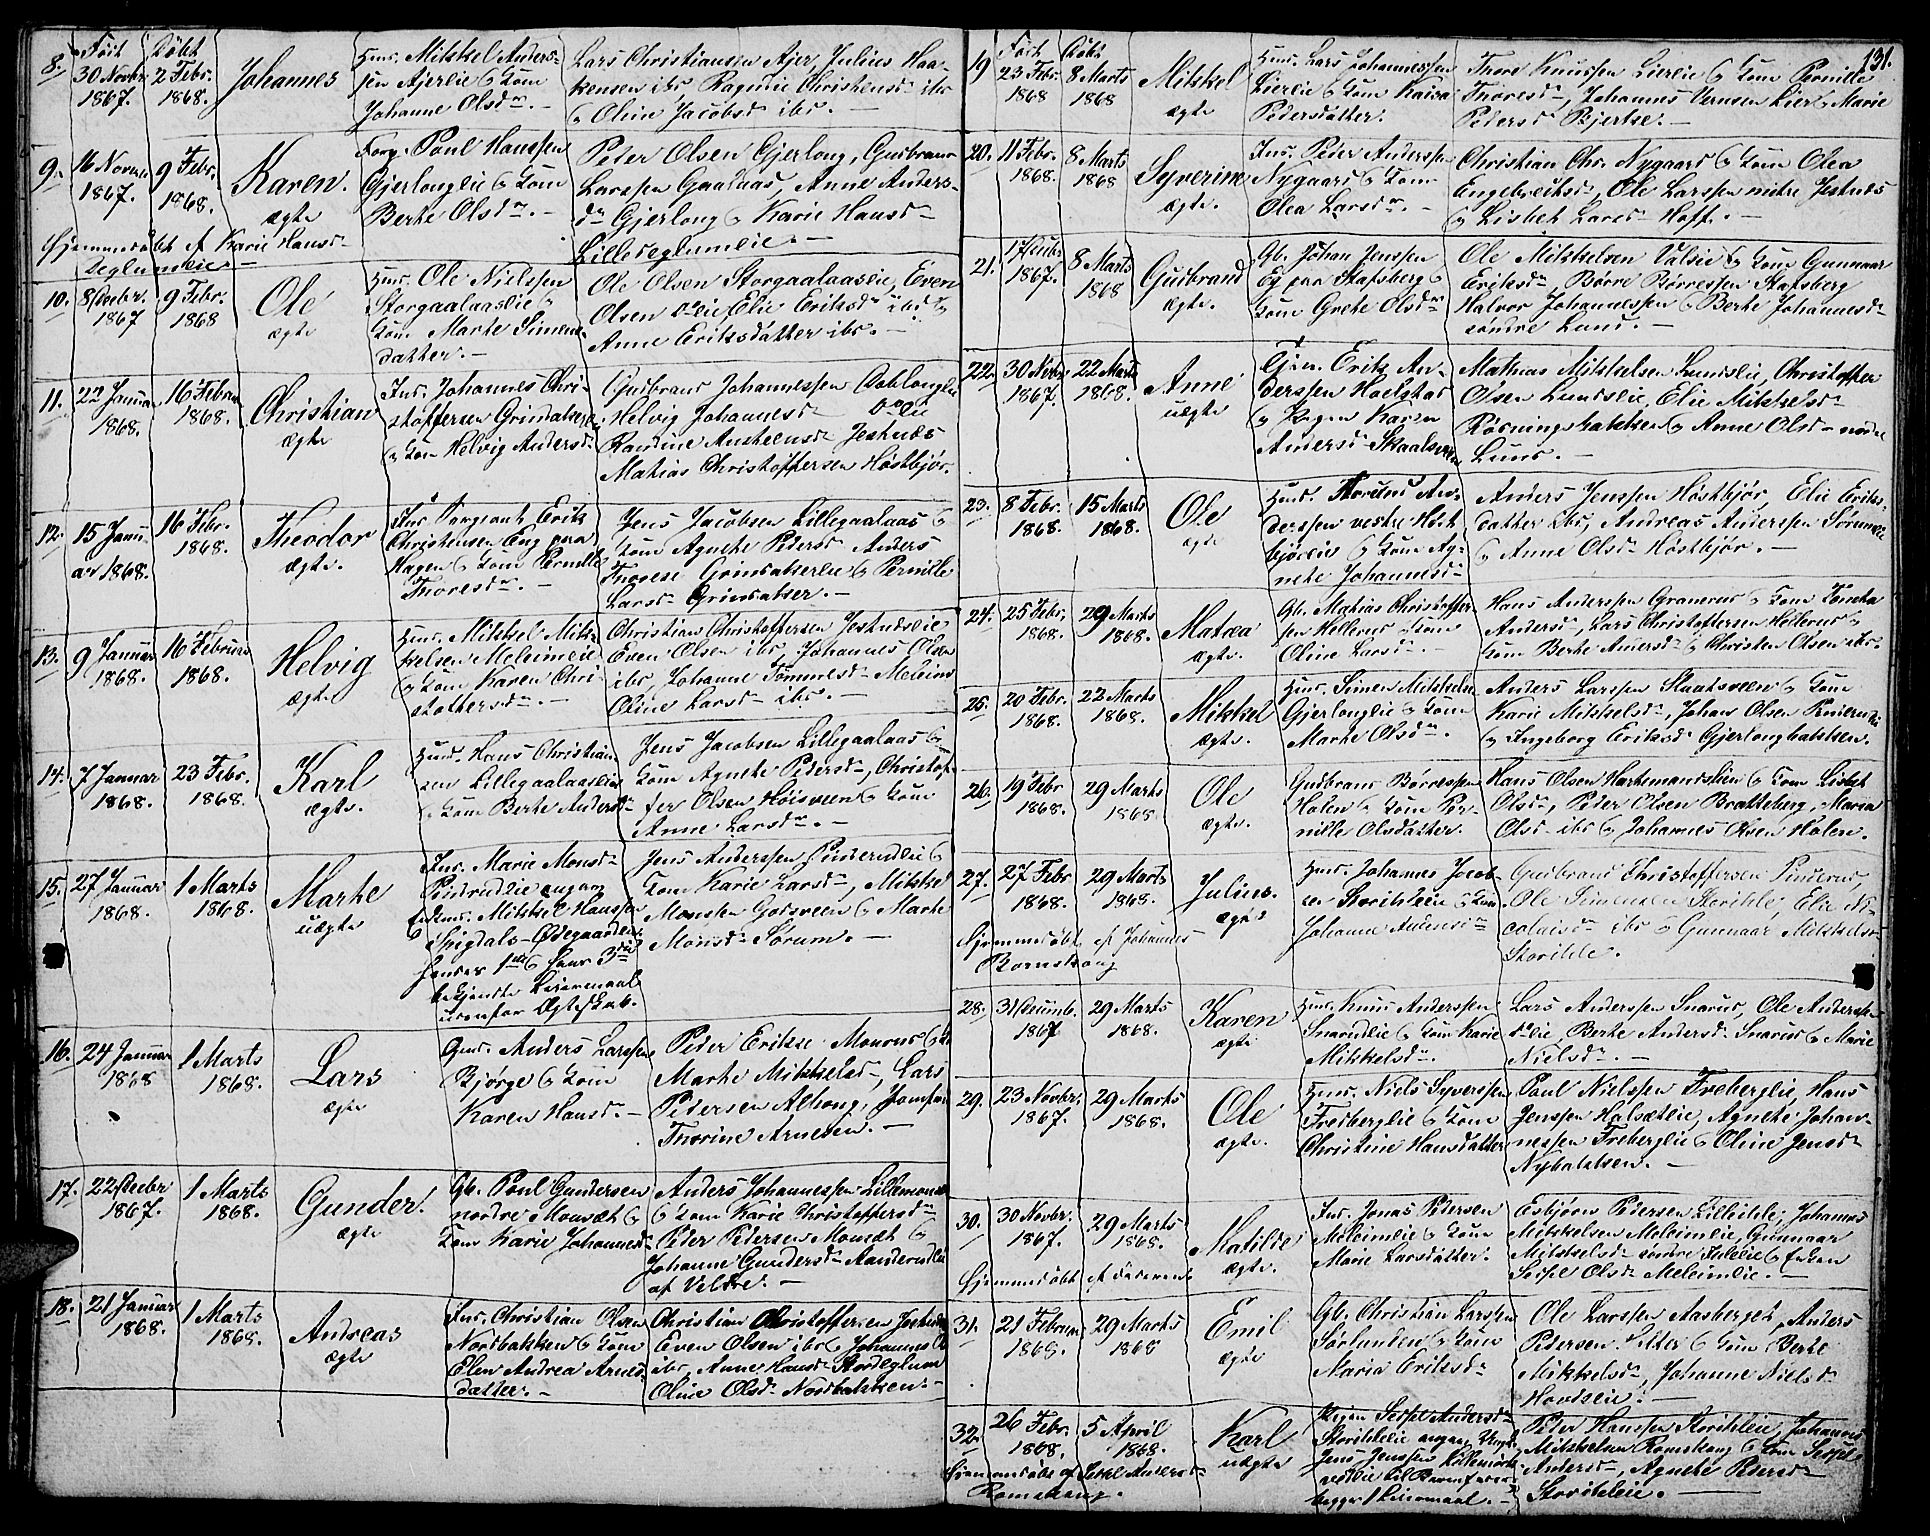 8. Født 30 Novbr. 1867. Døbt 2 Febr. 1868. Johannes
Huus. Mikkel Anders-
sen Ajerlie & Kone
Johanne Olsdr. -
Lars Christiansen Ajer, Julius Haa-
kensen ibr Ragnie Christensdr ibr
& Oline Jacobsd ibr. -
9. 16 Novbr 1867. 9 Febr. 1868. Karen. ægte
Forg. Poul Hanssen
Gjerlonglie & Kone
Berthe Olsdr. -
Peder Olsen Gjerlong, Gudbrand
Larssen Gaalaas, Anne Anders-
dr Gjerlong & Karie Hansd
Lilledeglumlie. -
Hjemmedøbt af Karie Hansd
Deglumlie -
10. 8 Decbr. 1867 9 Febr. 1868 Ole ægte
Huus. Ole Nielssen
Storgaalaaslie &
Kone Marthe Simens-
datter. -
Ole Olsen Storgaalaaslie, Even
Olsen Elie Eriksdr ibd &
Anne Eriksdatter ibr. -
11. 22 Januar 1868. 16 Februar 1868. Christian ægte
Ins. Johannes Chri-
stoffersen Grindaker
& Kone Helvig Andersd
Gudbrand Johannessen
Helvig Johannesd
Karine Jestnæs
Mathias Christoffersen Høstbjør.
12. 15 Janu- ar 1868. 16 Febr. 1868. Theodor ægte.
Ins. Sergeant Erik
Christensen Eng paa
Hagen & Kone Pernille
Thoresdr. -
Jens Jacobsen Lillegaalaas &
Kone Agnethe Pedersd Anders
Thorese Grindakerlie & Pernille
Larsd Grindaker. -
13. 9 Januar 1868. 16 Februar 1868. Helvig ægte
Huus. Mikkel Mik-
kelsen Meleimlie
& Kone Karen Chri-
stoffersdr. -
Christian Christoffersen Jestnæslie
Even Olsen ibr, Johannes Olsen
ibr, Johanne Tommesd Meleim
Oline Larsd ibr. -
14. 7 Januar 1868. 23 Febr. 1868. Karl ægte.
Huus. Hans Christian-
sen Lillegaalaaslie
& Kone Berthe Andersd
Jens Jacobsen Lillegaalaas &
Kone Agnethe Pedersd, Christof-
fer Olsen Høisveen & Kone
Anne Larsdr. -
15. 27 Januar 1868. 1 Marts 1868. Marthe uægte
Ins. Marie Monsd
Pinderudlie angav
Enkem. Mikkel Hanssen
Sigdals-Ødegaarden.
hendes 1ste & hans 3die
bekjendte Leiermaal
udenfor Ægteskab.
Jens Anderssen Pinderudlie &
Kone Karie Larsd, Mikkel
Monssen Godsveen & Marthe
Monsd Sørum. -
16. 24 Januar 1868 1 Marts 1868. Lars ægte
Huus. Anders Larssen
Bjørge & Kone
Karen Hansd -
Peder Erikse Monrud &
Marthe Mikkelsd, Lars
Pedersen Alhaug, Jomfru
Thorine Arnesen. -
17. 22 Decbr 1867. 1 Marts 1868. Gunder. ægte
Gb. Poul Gundersen
nordre Monsæt &
Kone Karie Johannesd
Anders Johannessen Lillemoen
& Kone Karie Christoffersd
Peder Pedersen Monsæt &
Johanne Gundersd Aanderudlie
af Veldre. -
18. 21 Januar 1868. 1 Marts 1868. Andreas ægte
Ins. Christian Olsen
Nordbakken & Kone
Elen Andrea Arnes-
datter. -
Christian Christoffersen Jestnæs
Even Olsen ibr & Johannes
ibr, Anne Hansd Stordeglum
Oline Olsd Nordbakken -
131.
19 Født 23 Febr. 1868 Døbt 8 Marts 1868 Mikkel ægte
Huus. Lars Johannessen
Lierlie & Kone Kaisa
Pedersdatter.
Thore Knudssen Lierlie & Kone Pernille
Thoresd, Johannes Lier, Marie
Pedersd Bjerke. -
20. 11 Febr. 1868. 8 Marts 1868 Syverine ægte.
Ins. Peder Anderssen
Nygaard & Kone
Olea Larsdr. -
Christian Chr. Nygaard & Kone Olea
Engebretsd, Ole Larssen nedre Jestnæs
& Lisbet Larsd Hoff. -
21. 17 Decbr 1867. 8 Marts 1868 Gudbrand ægte.
Gb. Johan Jenssen
Eg paa Stafsberg &
Kone Grethe Olsdr
Ole Mikkelsen Valsie & Kone Gunnaar
Eriksdr, Børre Børressen Stafsberg
Halvor Johannessen & Berthe Johannesd
søndre Lund. -
22. 30 Novbr 1867. 22 Marts 1868. Anne uægte
Tjen. Erik An-
derssen Hoelstad
& Pigen Karen
Andersd Skaalsveen
Mathias Mikkelsen Lundslie, Christoffer
Olsen Lundslie, Elie Mikkelsd
Røsningsbakken & Anne Olsd nedre
Lund. -
23. 8 Febr. 1868. 15 Marts 1868. Ole ægte
Huus. An-
derssen vestre Høst-
bjørlie & Kone Ag-
nethe Johannesd
Anders Jenssen Høstbjør, Elie Eriks-
datter ibr, Andreas Anderssen Sørumlie
& Anne Olsd Høstbjør. -
24. 25 Febr, 1868. 29 Marts 1868. Matea ægte.
Gb. Mathias Christoffer-
sen Hellerud & Kone
Oline Larsd. -
Hans Anderssen Granerud & Kone
Andersd, Lars Christoffersen Hellerud &
Kone Berthe Andersd & Christen Olsen ibr.
25. 20 Febr. 1868. 22 Marts 1868. Mikkel ægte.
Huus. Simen Mikkelsen
Gjerlonglie & Kone
Marthe Olsdr.
Anders Larssen Skaalsveen & Kone
Karie Mikkelsdr, Johan Olsen Pinderudlie
& Ingeborg Eriksd Gjerlongbakken.
26. 19 Febr 1868. 29 Marts 1868. Ole ægte.
Gudbrand Børressen
Holen & Kone Per-
nille Olsdatter.
Hans Olsen Hartemandslien & Kone Lisbet
Olsd, Peder Olsen Bratteberg, Maren
Olsd ibr & Johannes Olsen Holen.
27. 27 Febr 1868. 29 Marts 1868. Julius. ægte
Huus. Johannes Jacob-
sen Storihlelie & Kone
Johanne Andersd
Gudbrand Christoffersen Pinderud,
Ole Simensen Storihle, Elie Ni-
colaisd ibr & Gunnaar Mikkelsd
Storihle.
Hjemmedøbt af Johannes
Romskoug
28. 31 Decemb. 1867 29 Marts 1868. Karen ægte
Huus. Knud Anderssen
Snarudlie & Kone Karie
Mikkelsdr.
Lars Anderssen Snarud, Ole Anderssen
Berthe Andersd Snarud & Marie
Nielsdr. -
29. 23 Novbr. 1867. 29 Marts 1868. Ole ægte.
Huus. Niels Syverssen
Fredberglie & Kone
Christine Hansdatter
Poul Nielssen Freberglie, Hans
Jenssen Halsætlie, Agnethe Johan-
nessen Freberglie & Oline Jensd
Nybakken. -
30. 30 Novbr. 1867. 29 Marts 1868. Matilde ægte.
Ins. Jonas Pedersen
Meleimlie & Kone
Marie Larsdatter.
Esbjørn Pedersen Lilleihle, Johannes
Mikkelsen Meleimlie, Gunnaar
Mikkelsdr søndre & Enken
Sessel Olsd Meleimlie. -
Hjemmedøbt af Faderen
31. 21 Februar 1868. 29 Marts 1868 Emil ægte
Gb. Christian Larssen
Sørlunden & Kone
Maria Eriksdr
Ole Larssen Aasberget, Anders
Pedersen & Kone Berthe
Mikkelsd, Johanne Nielsd
Hovdslie. -
32. 26 Febr. 1868, 5 April 1868. Karl uægte
Pigen Sessel Andersd
Storihlelie angav Ungk.
Jens Jenssen
til Barnefader
begges 1 Leiermaal. -
Peder Hanssen Storihlelie, Johannes
Mikkelsen Romskoug & Kone Sessel
Andersdr, Agnethe Pedersd
Storihlelie. -
Hjemmedøbt af Andersd
Romskoug.